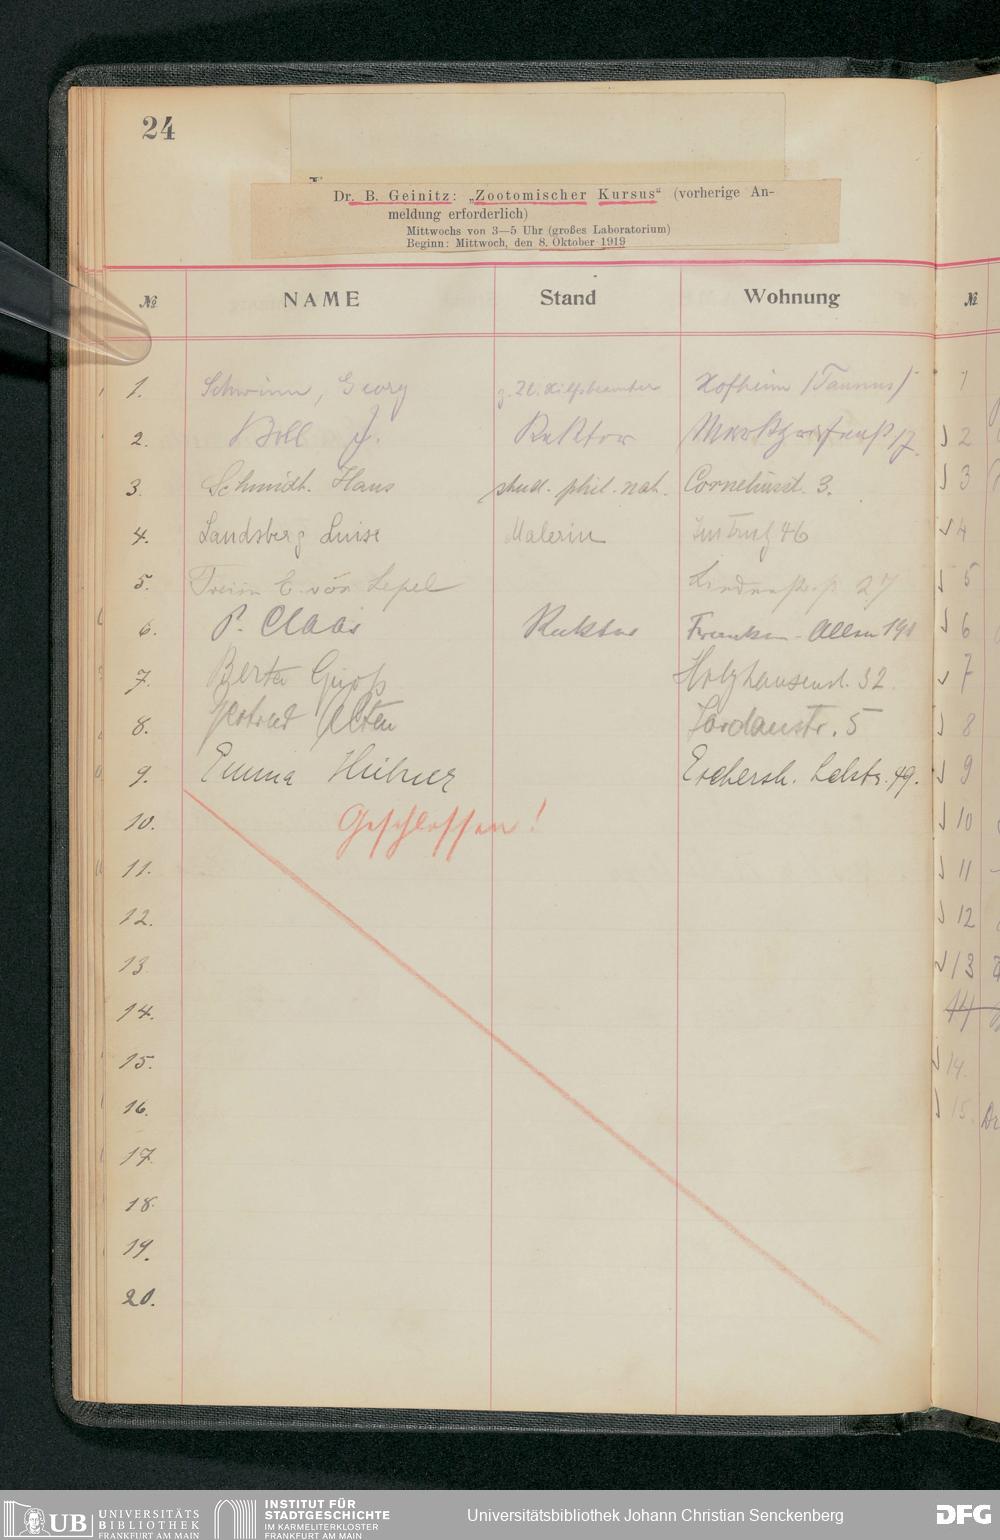 24
Dr. B. Geinitz: „Zootomischer Kursus“ (vorherige An-
meldung erforderlich)
Mittwochs von 3—5 Uhr (großes Laboratorium)
Beginn: Mittwoch, den 8. Oktober 1919
№ NAME Stand Wohnung №
1. Schwinn, Georg z. Zt. Hilfsbeamter Hofheim (Taunus) 1
2. Boll J. Rektor 17. 2
3. Schmidt. Hans stud. phil. nat. Corneliusst. 3. 3
4. Landsberg Luise Malerin 46 4
5. von Lepel 27 5
6. P. Claas Rektor Franken-Allee 6
7. Berta Holzhausenst. 32. 7
8. Alten Jordanstr. 5 8
9. Emma Hübner Eschersh. Ldstr. 49. 9
10. Geschlossen! 10
11. 11
12. 12
13 13
14. 14
15. 14.
16. 15.
17.
18.
19.
20.
UB UNIVERSITÄTS
BIBLIOTHEK
FRANKFURT AM MAIN
INSTITUT FÜR
STADTGESCHICHTE
IM KARMELITERKLOSTER
FRANKFURT AM MAIN
Universitätsbibliothek Johann Christian Senckenberg
DFG